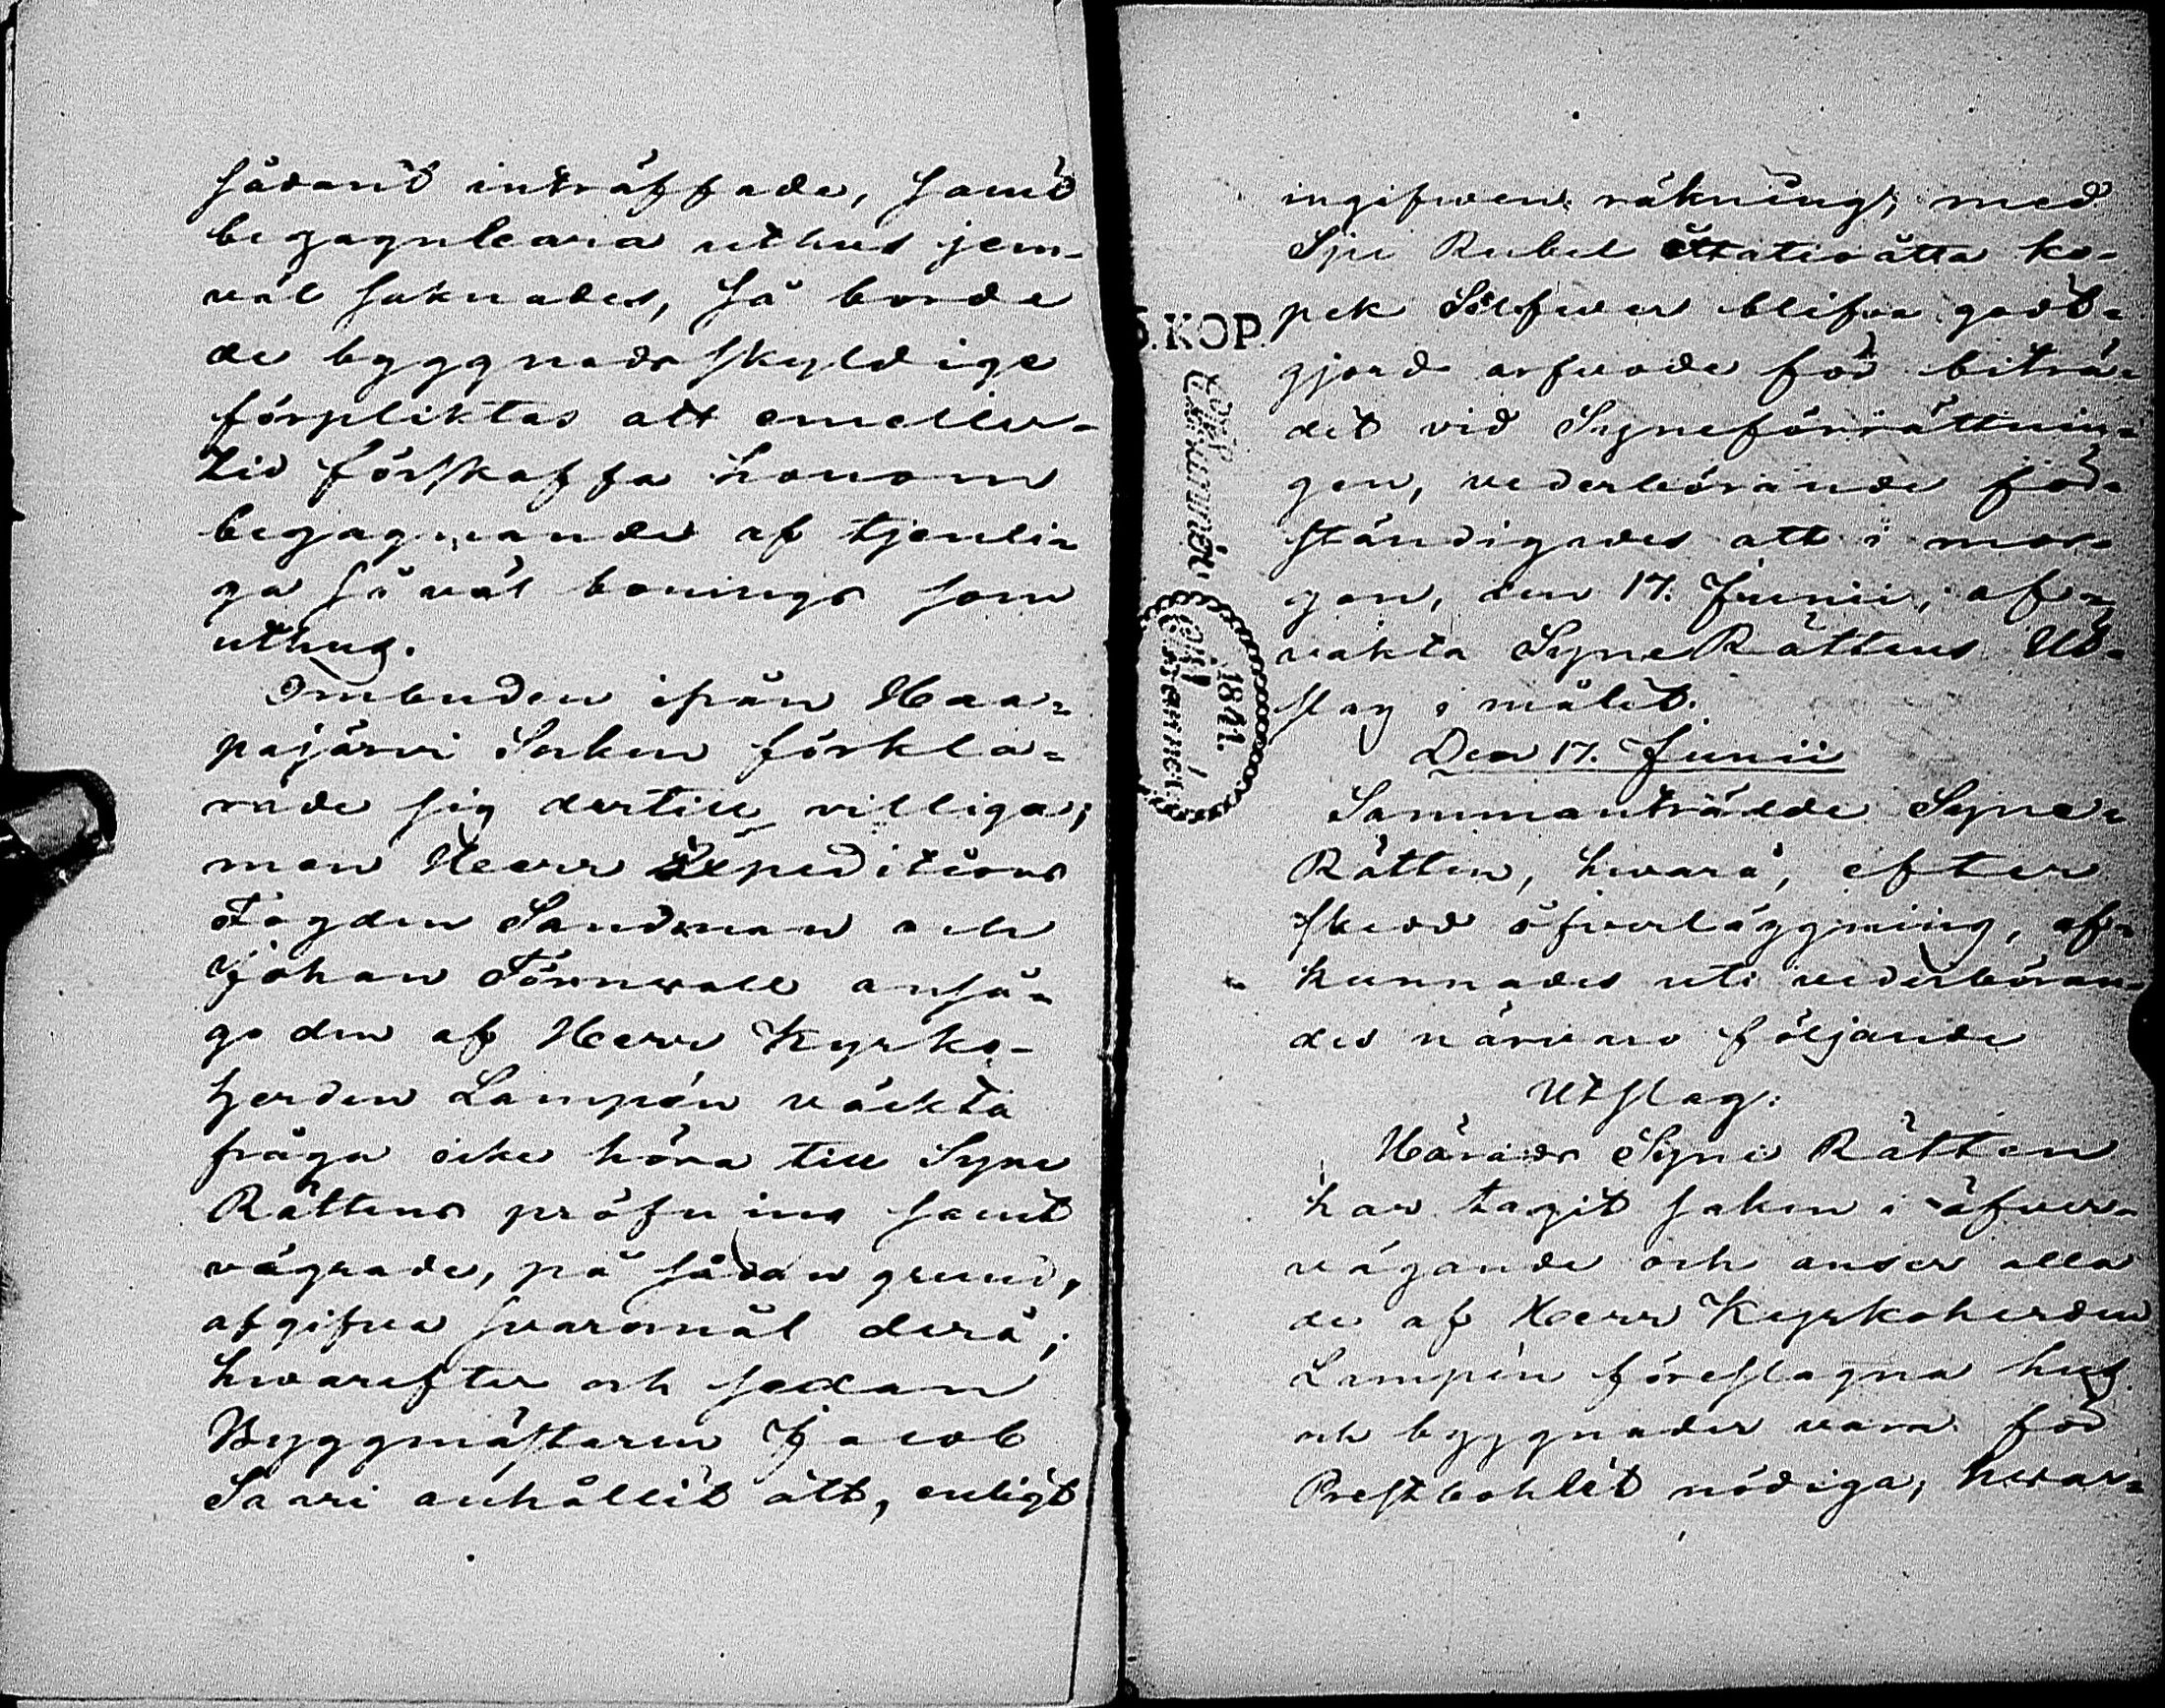 sådant inträffade, samt
begagnleara uthus jem-
väl saknades, så borde
de byggnadsskyldige
förpliktas att emeller-
tid förskaffa honom
begagnande af tjenli-
ga så väl bonings som
uthus.
Ombuden ifrån Haa-
pajärvi Socken förkla-
rade sig dertill villiga;
men Herr Expeditions
Fogden Sandman och
Johan Törnvall anså-
go den af Herr Kyrko-
herden Lampén väckta
fråga icke höra till Syne
Rättens pröfning samt
vägrade, på sådan grund,
afgifva svaromål derå;
hvarefter och sedan
Byggmästaren Jacob
Saari anhållit att, enligt
ingifwen räkning, med
Sju Rubel åttatioåtta ko-
pek Silfwer blifva godt-
gjord arfvode för biträ-
det vid Syneförrättnin-
gen, vederbörande för-
ständigades att i mor-
gon, den 17. Junii, af-
vakta Syne Rättens Ut-
slag i målet.
Den 17. Junii
Sammanträdde Syne-
Rätten, hvarå, efter
skedd öfverläggning, af-
kunnades uti vederböran-
des närvaro följande
Utslag:
Härads Syne Rätten
har tagit saken i öfver-
vägande och anser alla
de af Herr Kyrkoherden
Lampén föreslagna hus
och byggnader vara för
Prestbohlet nödiga; hvar-
5.KOP.
1844.
Charta